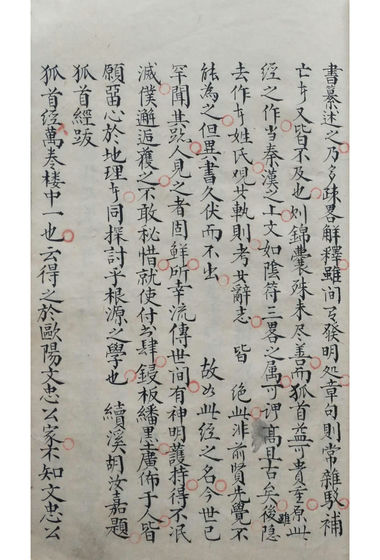 書纂述之乃多踈畧解釋雖間有發明処章句則常雜駁補
亡者又皆不及也则錦囊殊未尽善而狐首益可貴至原此
經之作当秦漢之上文如陰符三畧之属可谓高且古矣後雖隐
去作者姓氏观其軌則考其辭志 皆 绝此非前賢先覺不
能為之但異書久伏而不出 故如此經之名今世已
罕聞其人見之者固鮮所幸流傳世间有神明護持得不泯
滅僕邂逅獲之不敢秘惜就使付书肆鋟板繙墨廣佈于人皆
願畱心於地理者同探討乎根源之學也 續溪胡汝嘉題
狐首經跋
狐首经萬卷楼中一也云得之於歐陽文忠公家不知文忠公